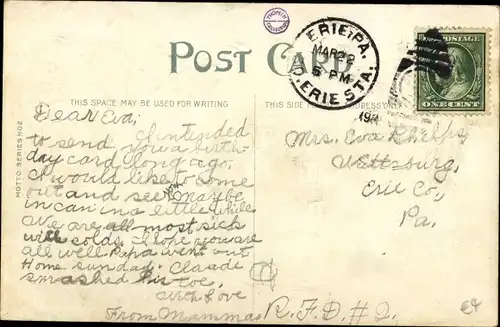 POST CARD
ERIE, PA.
MAR 22
5 PM
ERIE STA.
191
U.S. POSTAGE
ONE CENT
THIS SPACE MAY BE USED FOR WRITING
THIS SIDE
MOTTO SERIES NO 2
Dear Eva;
I intended
to send you a birth-
day card long ago.
I would like to come
out and see you Maybe
in can in a little while
We are all most sick
with colds. I hope you are
all well. Papa went out
Home sunday. Claude
smashed his toe.
with Love
From Mamma
Mrs. Eva
Wattsburg,
Erie Co,
Pa.
R.F.D. #2.